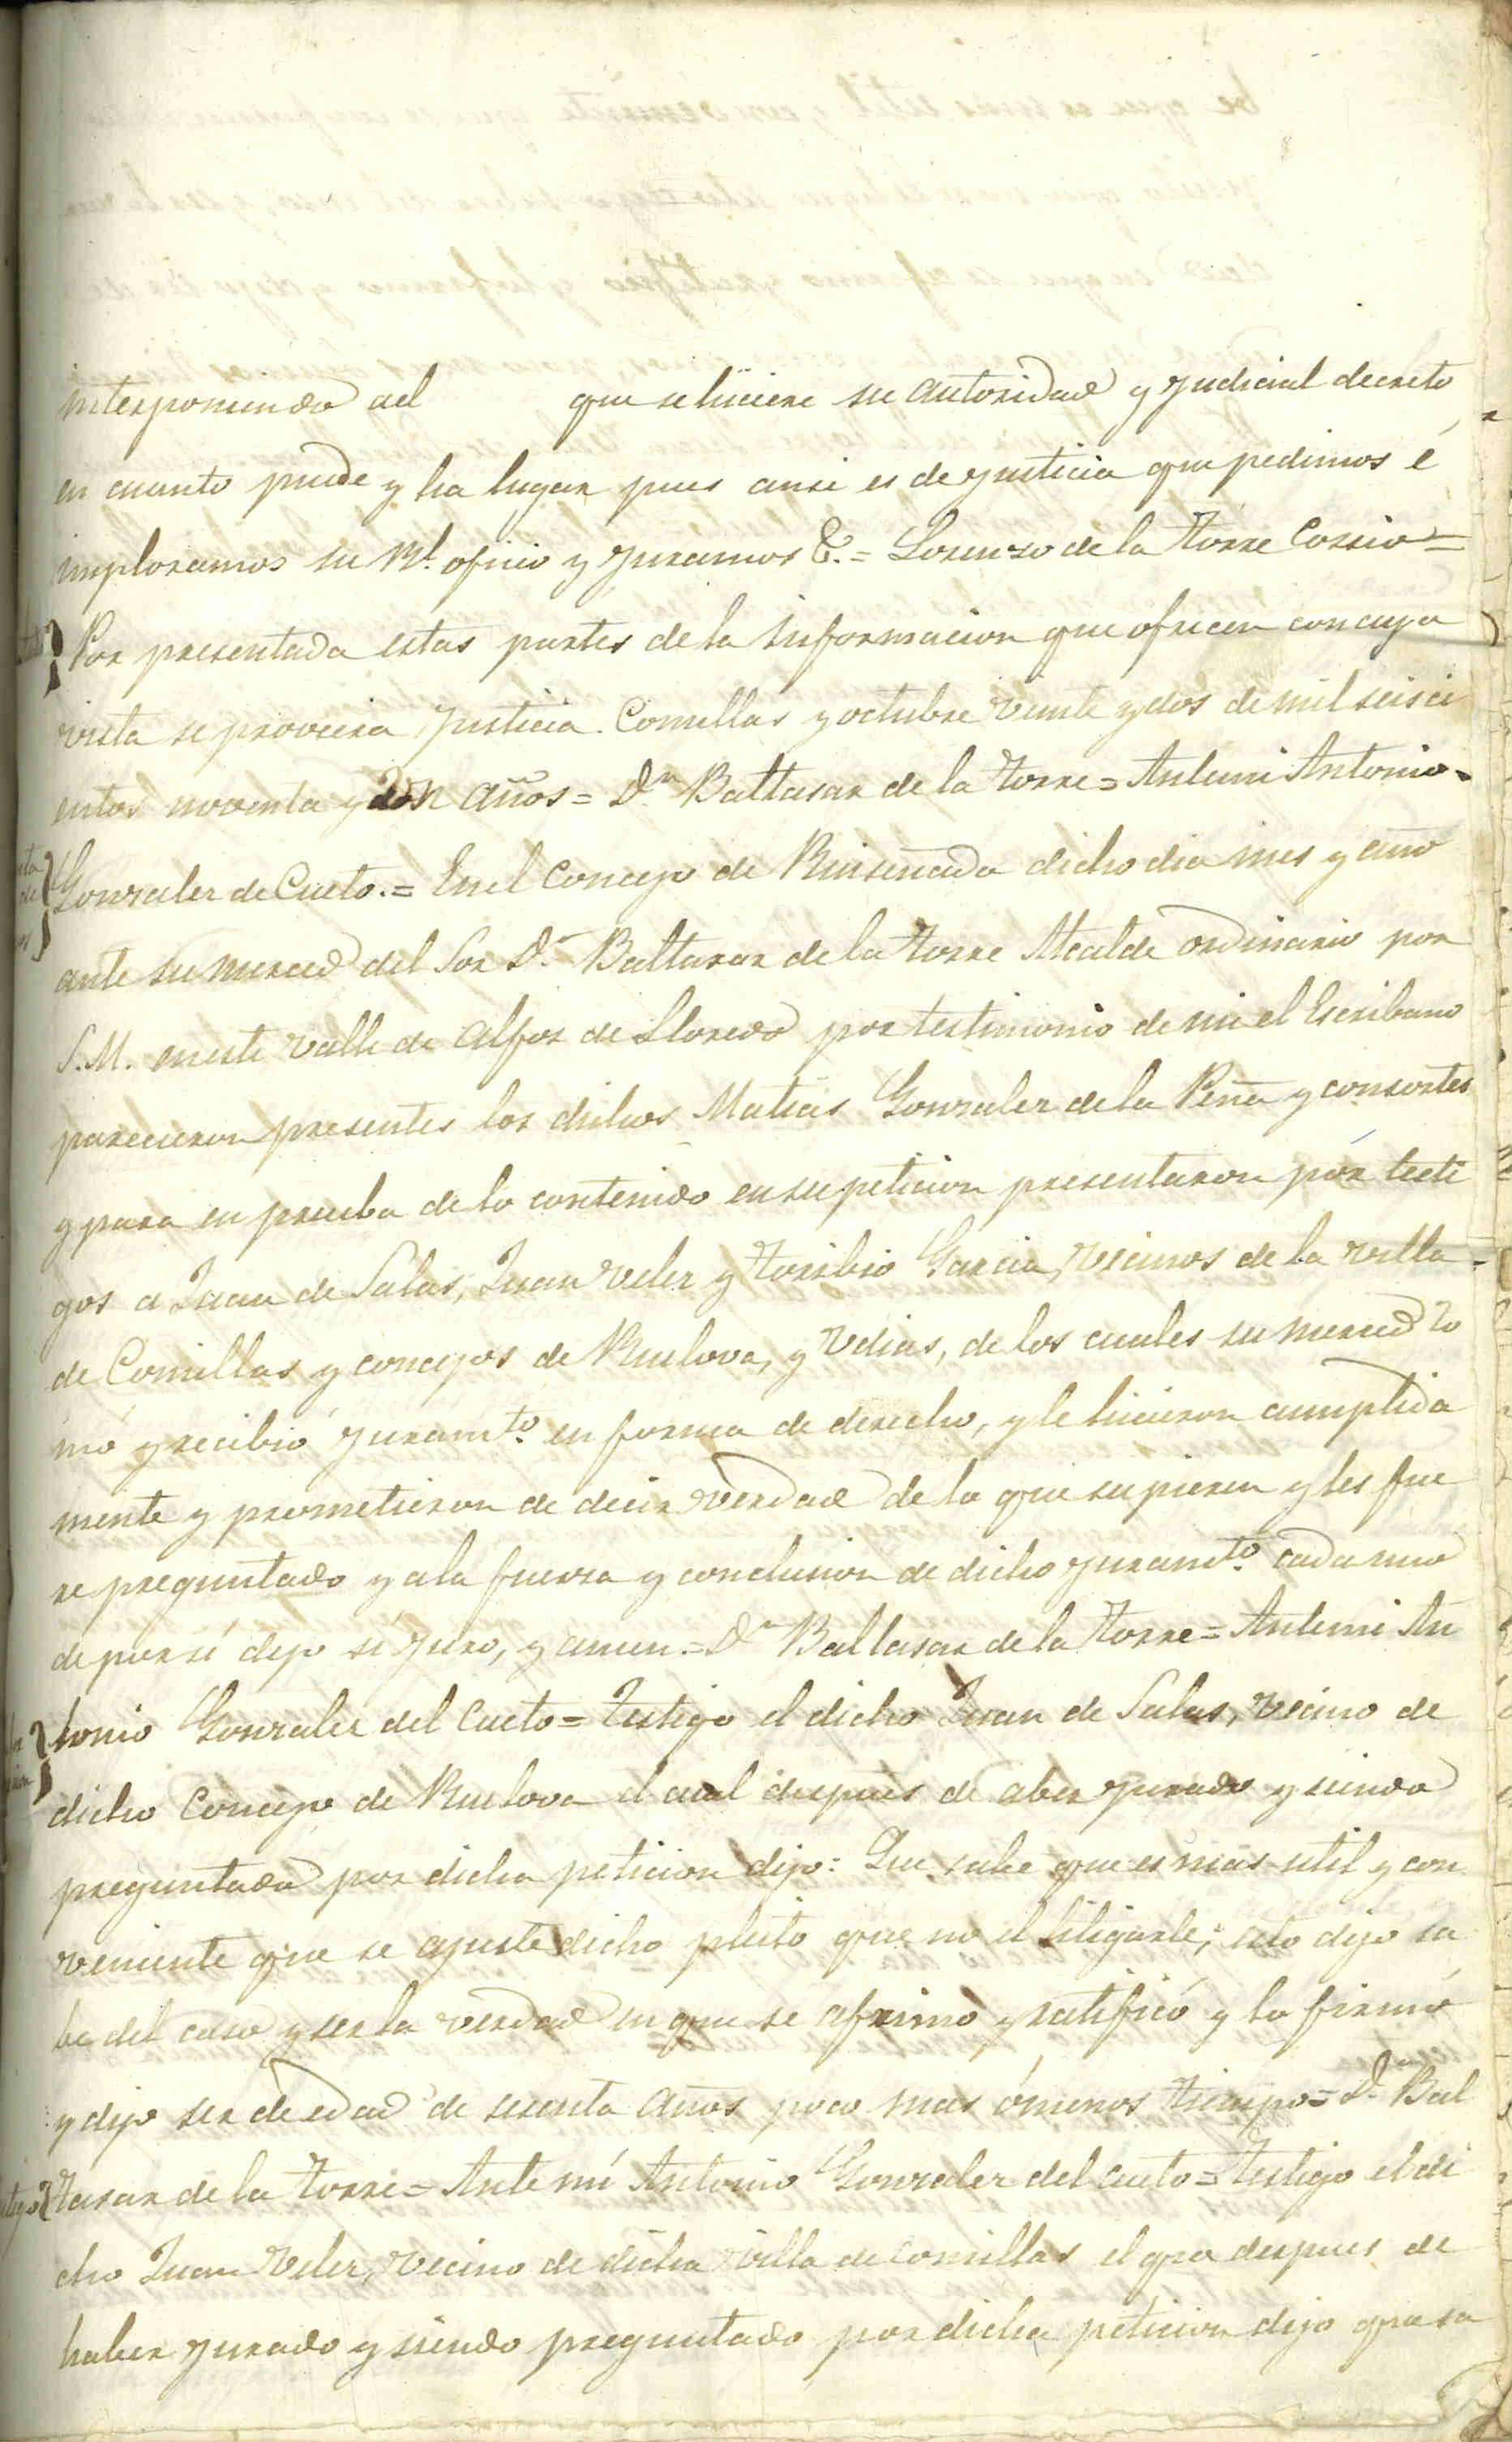 interponiendo ael que se hiciere su autoridad y judicial decreto
en cuanto puede y ha lugar pues ansi es de justicia que pedimos é
imploramos su Rl. oficio y juramos &.= Lorenzo de la Torre Cossio=
Por presentada estas partes de la informacion que ofrecen con cuya
vista se proveira justicia. Comillas y octubre veinte y dos de mil seisci
entos noventa y años= Dn Baltasar de la Torre= Antemi Antonio
Gonzalez de Cueto.= En el Concejo de Ruiseñada dicho dia mes y año
ante su merced del Sor Dn Baltasar de la Torre Alcalde ordinario por
S.M. en este valle de Alfoz de Lloredo por testimonio de mi el Escribano
parecieron presentes los dichos Matias Gonzalez de la Peña y consortes
y para en prueba de lo contenido en su peticion presentaron pór testi
gos a Juan de Salas, Juan Velez y Toribio Garcia, vecinos de la villa
de Comillas y concejos de Ruilova, y Udias, de los cuales su merced to
mó y recibió juramto. en forma de derecho, y le hicieron cumplida
mente y prometieron de decir verdad de lo que supieren y les fue
re preguntado y a la fuerza y conclusion de dicho juramto. cada uno
de por si dejo sí juro, y amen.= Dn Baltasar de la Torre= Antemi An
tonio Gonzalez del Cueto= Testigo el dicho Juan de Salas, vecino de
dicho Concejo de Ruilova el cual despues de aber jurado y siendo
preguntado por dicha peticion dijo: Que sabe que es más util y con
veniente que se ajuste dicho pleito que no el litigarle; esto dijo sa
be del caso y ser la verdad en que se afrimó y ratificó y lo firmó
y dijo ser de edad de sesenta años poco mas ó menos tiempo= Dn Bal
tasar de la Torre= Ante mí Antonio Gonzalez del Cueto= Testigo el di
cho Juan Velez, vecino de dicha villa de Comillas el que despues de
haber jurado y siendo preguntado por dicha peticion dijo que sa